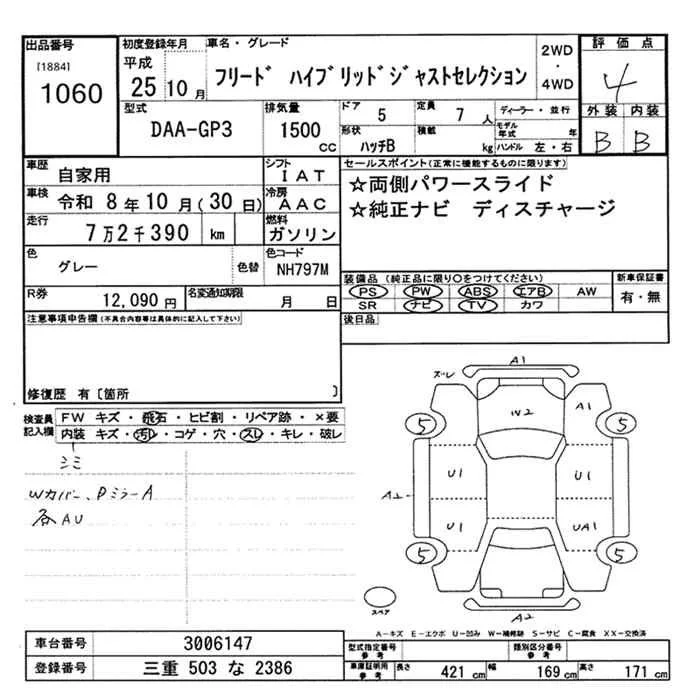 出品番号
[1884]
1060
初度登録年月
平成
25 10 月
車名・グレード
フリード ハイブリッドジャストセレクション
2WD
・
4WD
評価点
4
外装 内装
B B
型式
DAA-GP3
排気量
1500 cc
ドア 5
定員 7 人
ディーラー・並行
形状 ハッチB
積載 kg
モデル年式 年
ハンドル 左・右
車歴 自家用
シフト IAT
車検 令和 8 年 10 月 (30 日)
冷房 AAC
走行 7 万 2 千 390 km
燃料 ガソリン
色 グレー 色替
色コード NH797M
R券 12,090 円
名変通知期限 月 日
セールスポイント(正常に機能するものに限ります)
☆両側パワースライド
☆純正ナビ ディスチャージ
装備品 (純正品に限り○をつけてください)
PS PW ABS エアB AW
SR ナビ TV カワ
新車保証書
有・無
後日品
注意事項申告欄(不具合内容等は具体的に記入して下さい)
修復歴 有〔箇所 〕
検査員記入欄
FW キズ・飛石・ヒビ割・リペア跡・×要
内装 キズ・汚レ・コゲ・穴・スレ・キレ・破レ
シミ
Wカバー、PミラーA
各AU
ズレ
A1
W2
A1
5
5
U1
U1
A2
U1
UA1
5
5
スペア
A2
A-キズ E-エクボ U-凹み W-補修跡 S-サビ C-腐食 XX-交換済
車台番号 3006147
登録番号 三重 503 な 2386
型式指定番号 参考
類別区分番号 参考
車庫証明用 参考
長さ 421 cm
幅 169 cm
高さ 171 cm